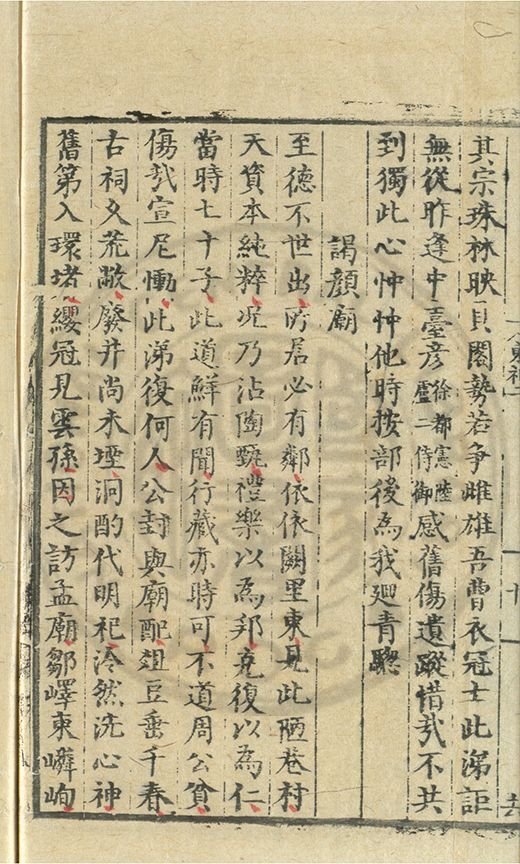 其宗珠林映貝閣勢若争雌雄吾曹衣冠士此涕詎
無從昨逢中臺彦徐都憲陸盧二侍御感舊傷遺蹤惜㢤不共
到獨此心忡忡他時按部後為我廻青驄
謁顔廟
至德不世出所居必有鄰依依闕里東見此陋巷村
天資本純粹况乃沾陶甄禮樂以為邦克復以為仁
當時七十子此道鮮有聞行藏亦時可不道周公貧
傷㢤宣尼慟此涕復何人公封與廟配俎豆垂千春
古祠久荒敝廢井尚未堙泂酌代明祀泠然洗心神
舊第入環堵纓冠見雲孫因之訪孟廟鄒嶧東巑岣